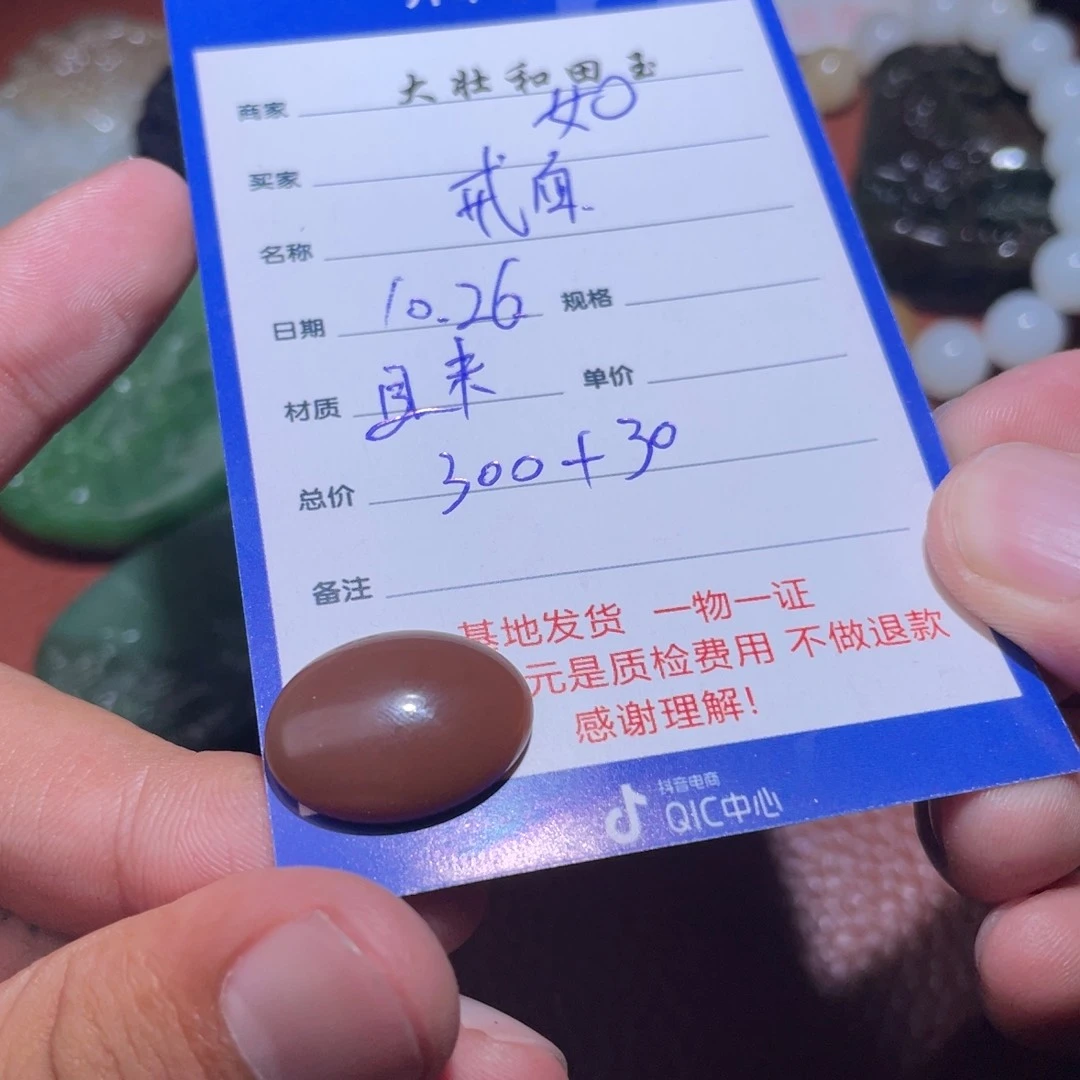 商家 大壮和田玉
买家 如
名称 戒面
日期 10.26 规格
材质 且末 单价
总价 300+30
备注
基地发货 一物一证
元是质检费用 不做退款
感谢理解!
抖音电商
QIC中心